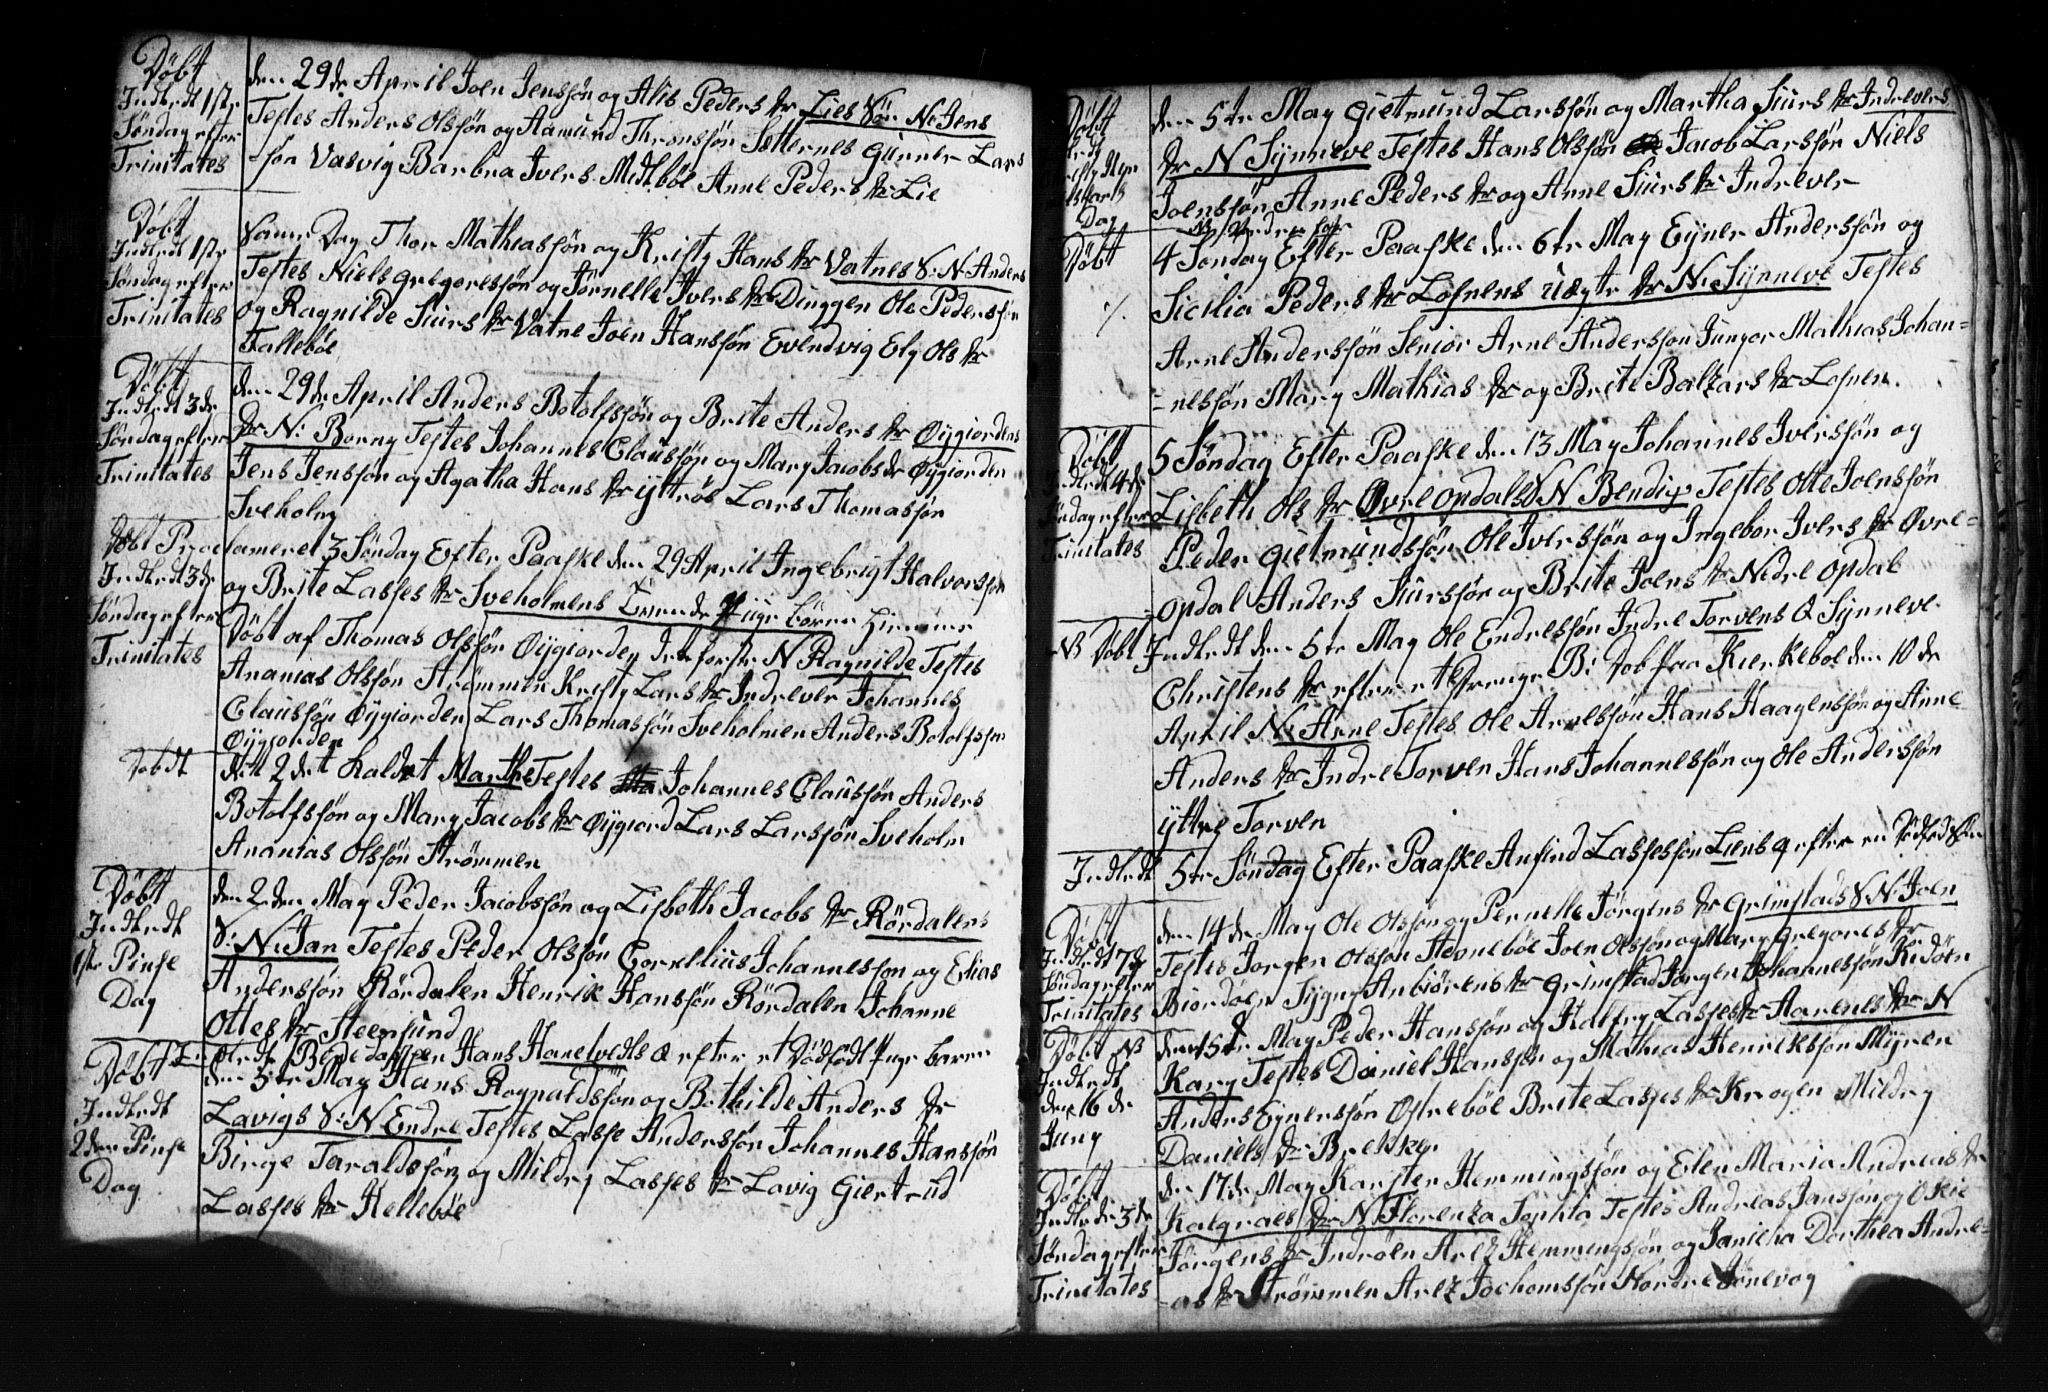 Døbt
Indledt 1ste
Søndag efter
Trinitates
den 29de April Joen Jenssøn og Alis Peders dr Lies Søn N: Jens
Testes Anders Olssøn og Aamund Thronssøn Sætternes Gunner Lars
søn Vasvig Barbra Ivers Midtbøe Anne Peders dr Lie
Døbt
Indledt 1ste
Søndag efter
Trinitates
Samme Dag Thor Mathiassøn og Kristy Hans dr Vatnes S: N: Anders
Testes Niels Gregoressøn og Tørnelle Ivers dr Dinggen Ole Pederssøn
og Ragnilde Siurs dr Vatne Joen Hanssøn Evendvig Ely Ols dr
Fallebøe
Døbt
Indledt 3de
Søndag efter
Trinitates
den 29de April Anders Botolfssøn og Brite Anders dr Øygiordens
dr N: Borny Testes Johannes Claussøn og Mary Jacobs dr Øygiorden
Jens Jenssøn og Agatha Hans dr Yttrøe Lars Thomassøn
Sveholm
Døbt
Indledt 3de
Søndag efter
Trinitates
3 Søndag Efter Paaske den 29 April Ingebrigt Halvorssøn
og Brite Lasses dr Sveholmens Tvende Piige børn Hiemme
Døbt af Thomas Olssøn Øygiorden det første N Ragnilde Testes
Ananias Olssøn Strømmen Kristy Lars dr Indrever Johannes
Claussøn Øygiorden Lars Thomassøn Sveholmen Anders Botolfssøn
Øygiorden
Døbdt
det 2det Kaldet Marthe Testes Johannes Claussøn Anders
Botolfssøn og Mary Jacobs dr Øygiord Lars Larssøn Sveholm
Ananias Olssøn Strømmen
Døbt
Indledt
1ste Pinse
Dag
den 2den May Peder Jacobssøn og Lisbeth Jacobs dr Rørdalens
S: N: Jan Testes Peder Olssøn Cornelius Johannessøn og Elias
Anderssøn Rørdalen Henrik Hanssøn Rørdalen Johanne
Ottes dr Steensund
Hans Hanelvedts Q efter et Dødfødt Pige baren
Døbt
Indledt
2den Pinse
Dag
den 5te May Hans Rognaldssøn og Bothilde Anders dr
Lavigs S: N Endre Testes Lasse Anderssøn Johannes Hanssøn
Birge Taraldssøn og Mildry Lasses dr Lavig Giertrud
Lasses dr Hellebøe
Døbt
Dag
den 5te May Gietmund Larssøn og Martha Siurs dr Indrevers
dr N Synneve Testes Hans Olssøn Jacob Larssøn Niels
Joenssøn Anne Peders dr og Anne Siurs dr Indrever
Døbt
4 Søndag Efter Paaske den 6te May Eyner Anderssøn og
Sicilia Peders dr Losnens Uægte dr N: Synneve Testes
Arne Anderssøn Senior Arne Anderssøn Jungor Mathias Johan=
=nessøn Mary Mathias dr og Brite Baltzars dr Losnen.
Døbt
Indledt 4de
Søndag efter
Trinitates
5 Søndag Efter Paaske den 13 May Johannes Iverssøn og
Lisbeth Ols dr Øvre Opdals S N. Bendix Testes Otte Joenssøn
Peder Gietmundssøn Ole Iverssøn og Ingebor Ivers dr Øvre=
=Opdal Anders Siurssøn og Brite Joens dr Nedre Opdal
NB Døbt
Indledt den 5te May Ole Endressøn Indre Torvens Q Synneve
Christens dr efter et Drenge B: Døbt paa Kierkeboe den 10de
April N: Arne Testes Ole Arnessøn Hans Haagenssøn og Anne
Anders dr Indre Torven Hans Johannessøn og Ole Anderssøn
Yttre Torven
Indledt
5te Søndag Efter Paaske Anfind Lassessøn Liens Q efter en Dødfød Søn
Døbt
Indledt 7de
Søndag efter
Trinitates
den 14de May Ole Olssøn og Pernelle Jørgens dr Grimstads S N: Joen
Testes Jorgen Olssøn Joen Olssøn og Mary Gregores dr
Biordøen Sygny Anbiørens dr Grimstad Jørgen Johannessøn Risøen
Døbt NB
Indledt
den 16de
Juny
den 15te May Peder Hanssøn og Kattry Lasses dr Aarenes dr N
Kary Testes Daniel Hanssøn og Mathias Henrikssøn Myren
Anders Eynerssøn Østrebøe Brite Lasses dr Krogen Mildry
Daniels dr Brekke
Døbt
Indledt 3de
Søndag efter
Trinitates
den 17de May Karsten Hemmingssøn og Elen Maria Andreas dr
Kalgraes dr N Florenza Sophia Testes Andreas Janssøn og Okie
Jørgens dr Indrøen Arez Hemmingssøn og Janicha Dorthea Andre=
=as dr Strømmen Arez Jochomssøn Nordre